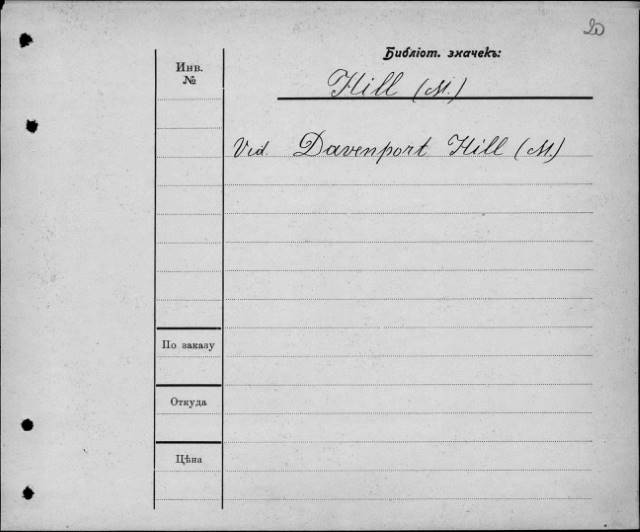 20
Библіот. значекъ:
Инв.
№
Hill (M.)
Vid. Davenport Hill (M.)
По заказу
Откуда
Цѣна